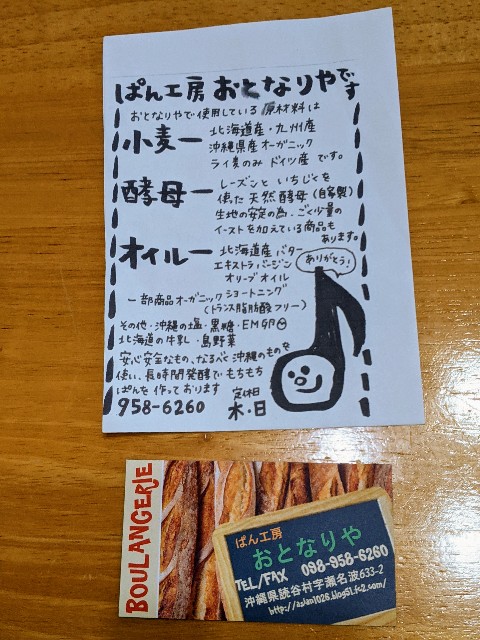 ぱん工房 おとなりやです
おとなりやで使用している 原材料は
小麦ー 北海道産・九州産
沖縄県産オーガニック
ライ麦のみ ドイツ産 です。
酵母ー レーズンと いちじくを
使った 天然酵母（自家製）
生地の安定の為・ごく少量の
イーストを加えている商品も
あります。
オイルー 北海道産 バター
エキストラバージン
オリーブオイル
ありがとう!
一部商品オーガニック ショートニング
（トランス脂肪酸フリー）
その他・沖縄の塩・黒糖・EM卵
北海道の牛乳・島野菜
安心安全なもの、なるべく沖縄のものを
使い、長時間発酵で もちもち
ぱんを作っております
958-6260
定休日
木・日
BOULANGERIE
ぱん工房
おとなりや
TEL/FAX 098-958-6260
沖縄県読谷村字瀬名波633-2